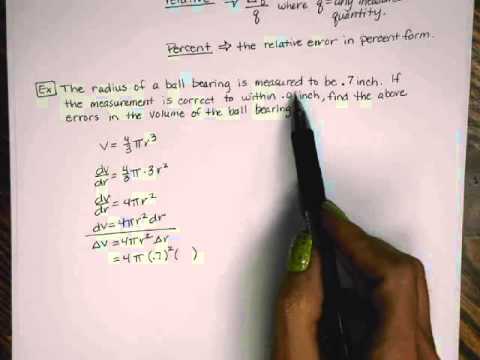 Relative ⇒ Δq/q where q = any measured
quantity.
Percent ⇒ the relative error in percent form.
Ex The radius of a ball bearing is measured to be .7 inch. If
the measurement is correct to within inch, find the above
errors in the volume of the ball bearing
V = 4/3 πr³
dv/dr = 4/3 π · 3r²
dv/dr = 4πr²
dv = 4πr² dr
ΔV = 4πr² Δr
= 4π (.7)² ( )